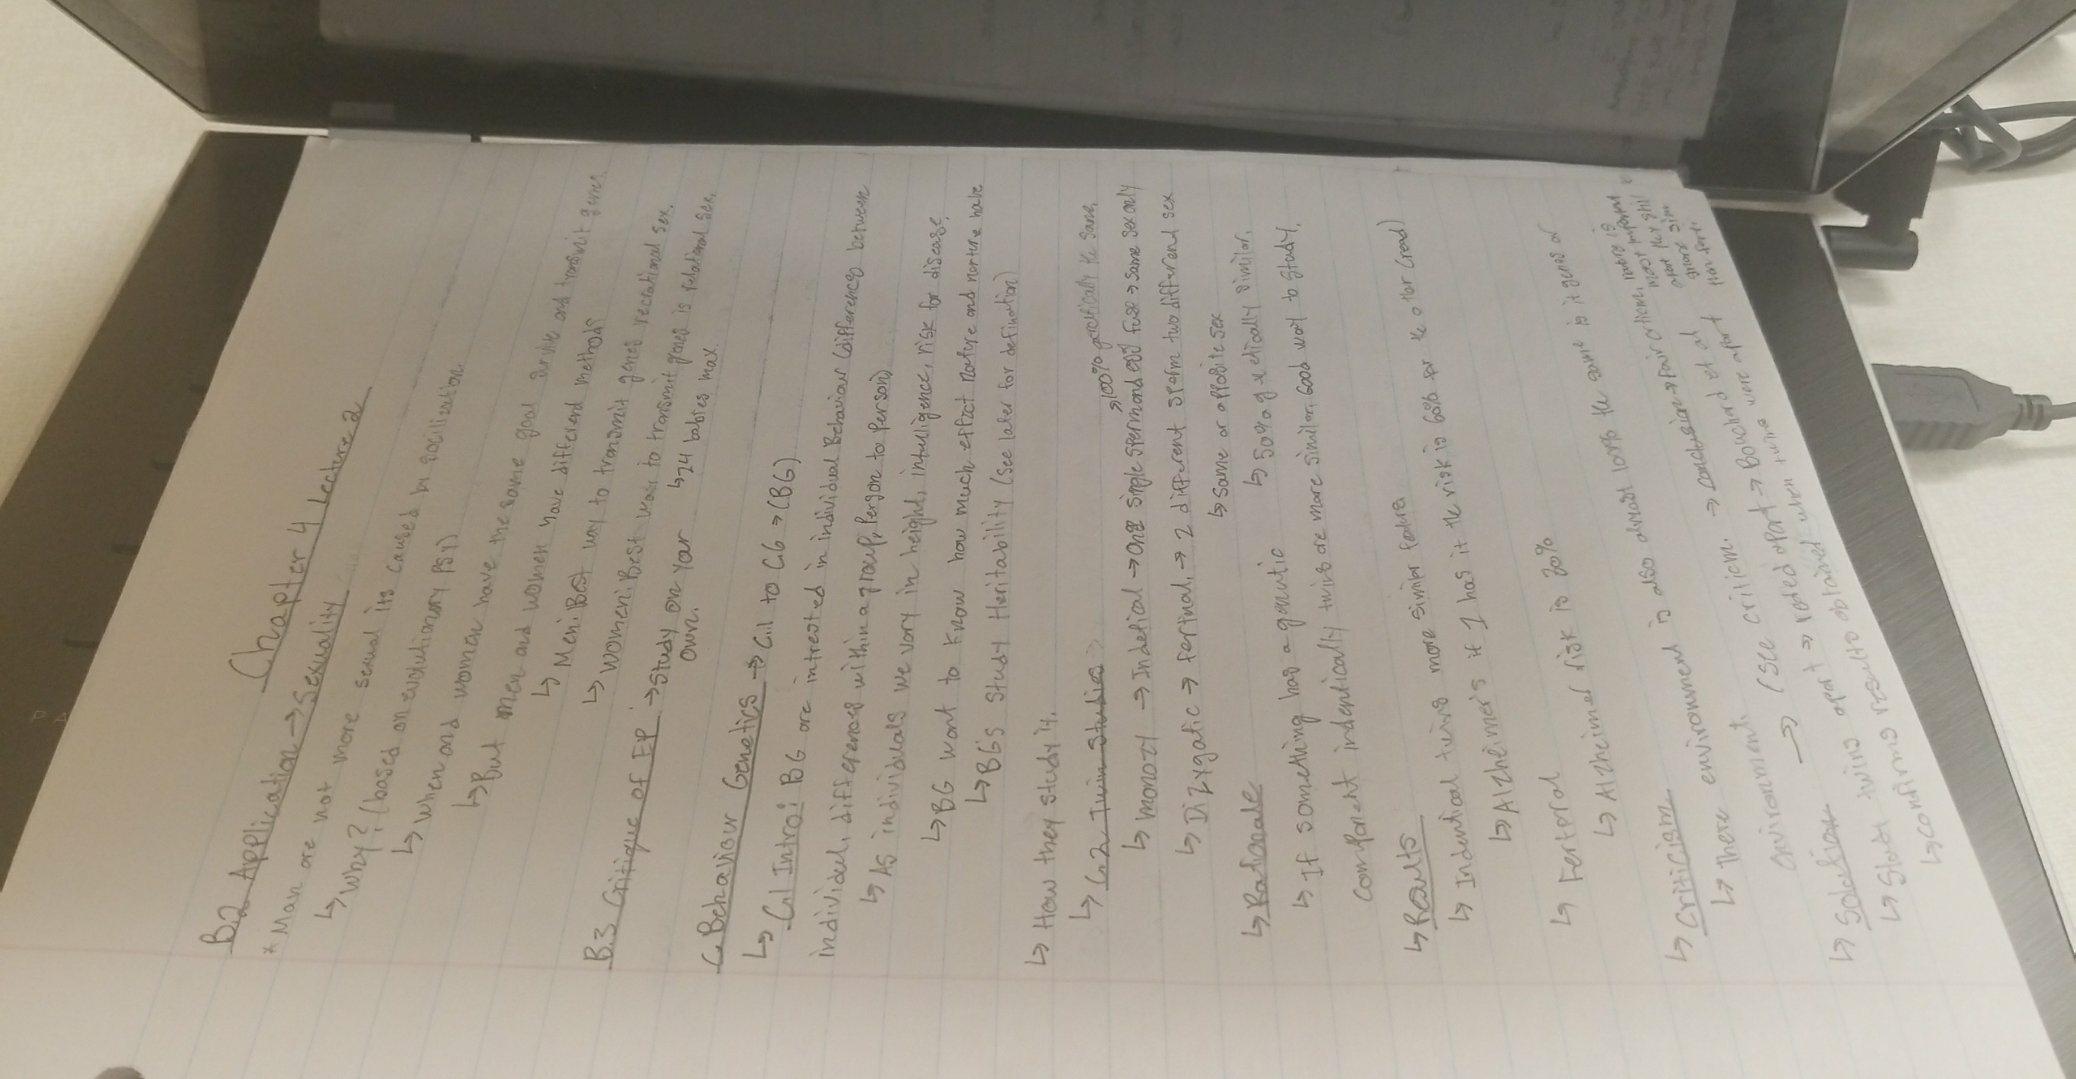 Chapter 4 Lecture 2
B.2 Application → Sexuality
* Man are not more sexual its caused by socilization.
↳ Why? (based on evolutionary psy)
↳ When and women have the same goal
↳ But men and women have the same goal and transmit genes
↳ have different methods
↳ Men: Best way to transmit genes recrational sex.
↳ Women: Best way to transmit genes is relational sex.
B.3 Critique of EP → Study on your own.
↳ 24 babies max.
C. Behaviour Genetics → C.1 to C.6 → (BG)
↳ C.1 Intro: BG are intrested in individual Behaviour (differences between
individuel, differences within a group, Person to Person)
↳ As individuals we vary in height, intelligence, risk for disease.
↳ BG want to know how much effect nature and norture have
↳ BG's Study Heritability (see later for defination)
↳ How they study it.
↳ C.2 Twin Studies
→ 100% genetically the same.
↳ monozy → Indetical → One single sperm and egg fuse → same sex only
↳ Dizygatic → fertnal. → 2 different sperm two different sex
↳ Same or opposite sex
↳ Rationale
↳ 50% genetically similar.
↳ If something has a genitic
component indentically twins are more similar. Good way to study.
↳ Results
↳ Indentical twins more similar
↳ Alzheimer's if 1 has it the risk is 60% for the other
↳ Ferternal
↳ Alzheimer risk is 30%
↳ Criticism
↳ There environment is also almost 100% the same is it genes or
environment. → (see criticm.
↳ Solution → reded apart → Bouchard et al
↳ Study twins apart → results obtained when twins were apart
↳ Confirms